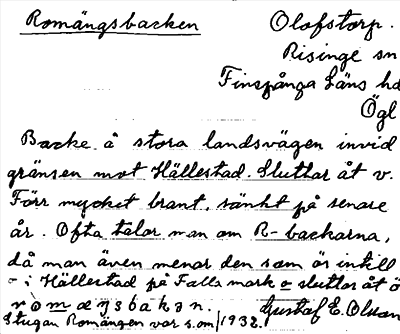 Romängsbacken
Olofstorp.
Risinge sn
Finspånga Läns hd
Ögl
Backe å stora landsvägen invid
gränsen mot Hällestad. Sluttar åt v.
Förr mycket brant, sänkt på senare
år. Ofta talar man om R-backarna,
då man även menar den som är intill
- i Hällestad på Falla mark o sluttar åt ö
Gustaf E. Olsson
Stugan Romängen var s.om/1932.